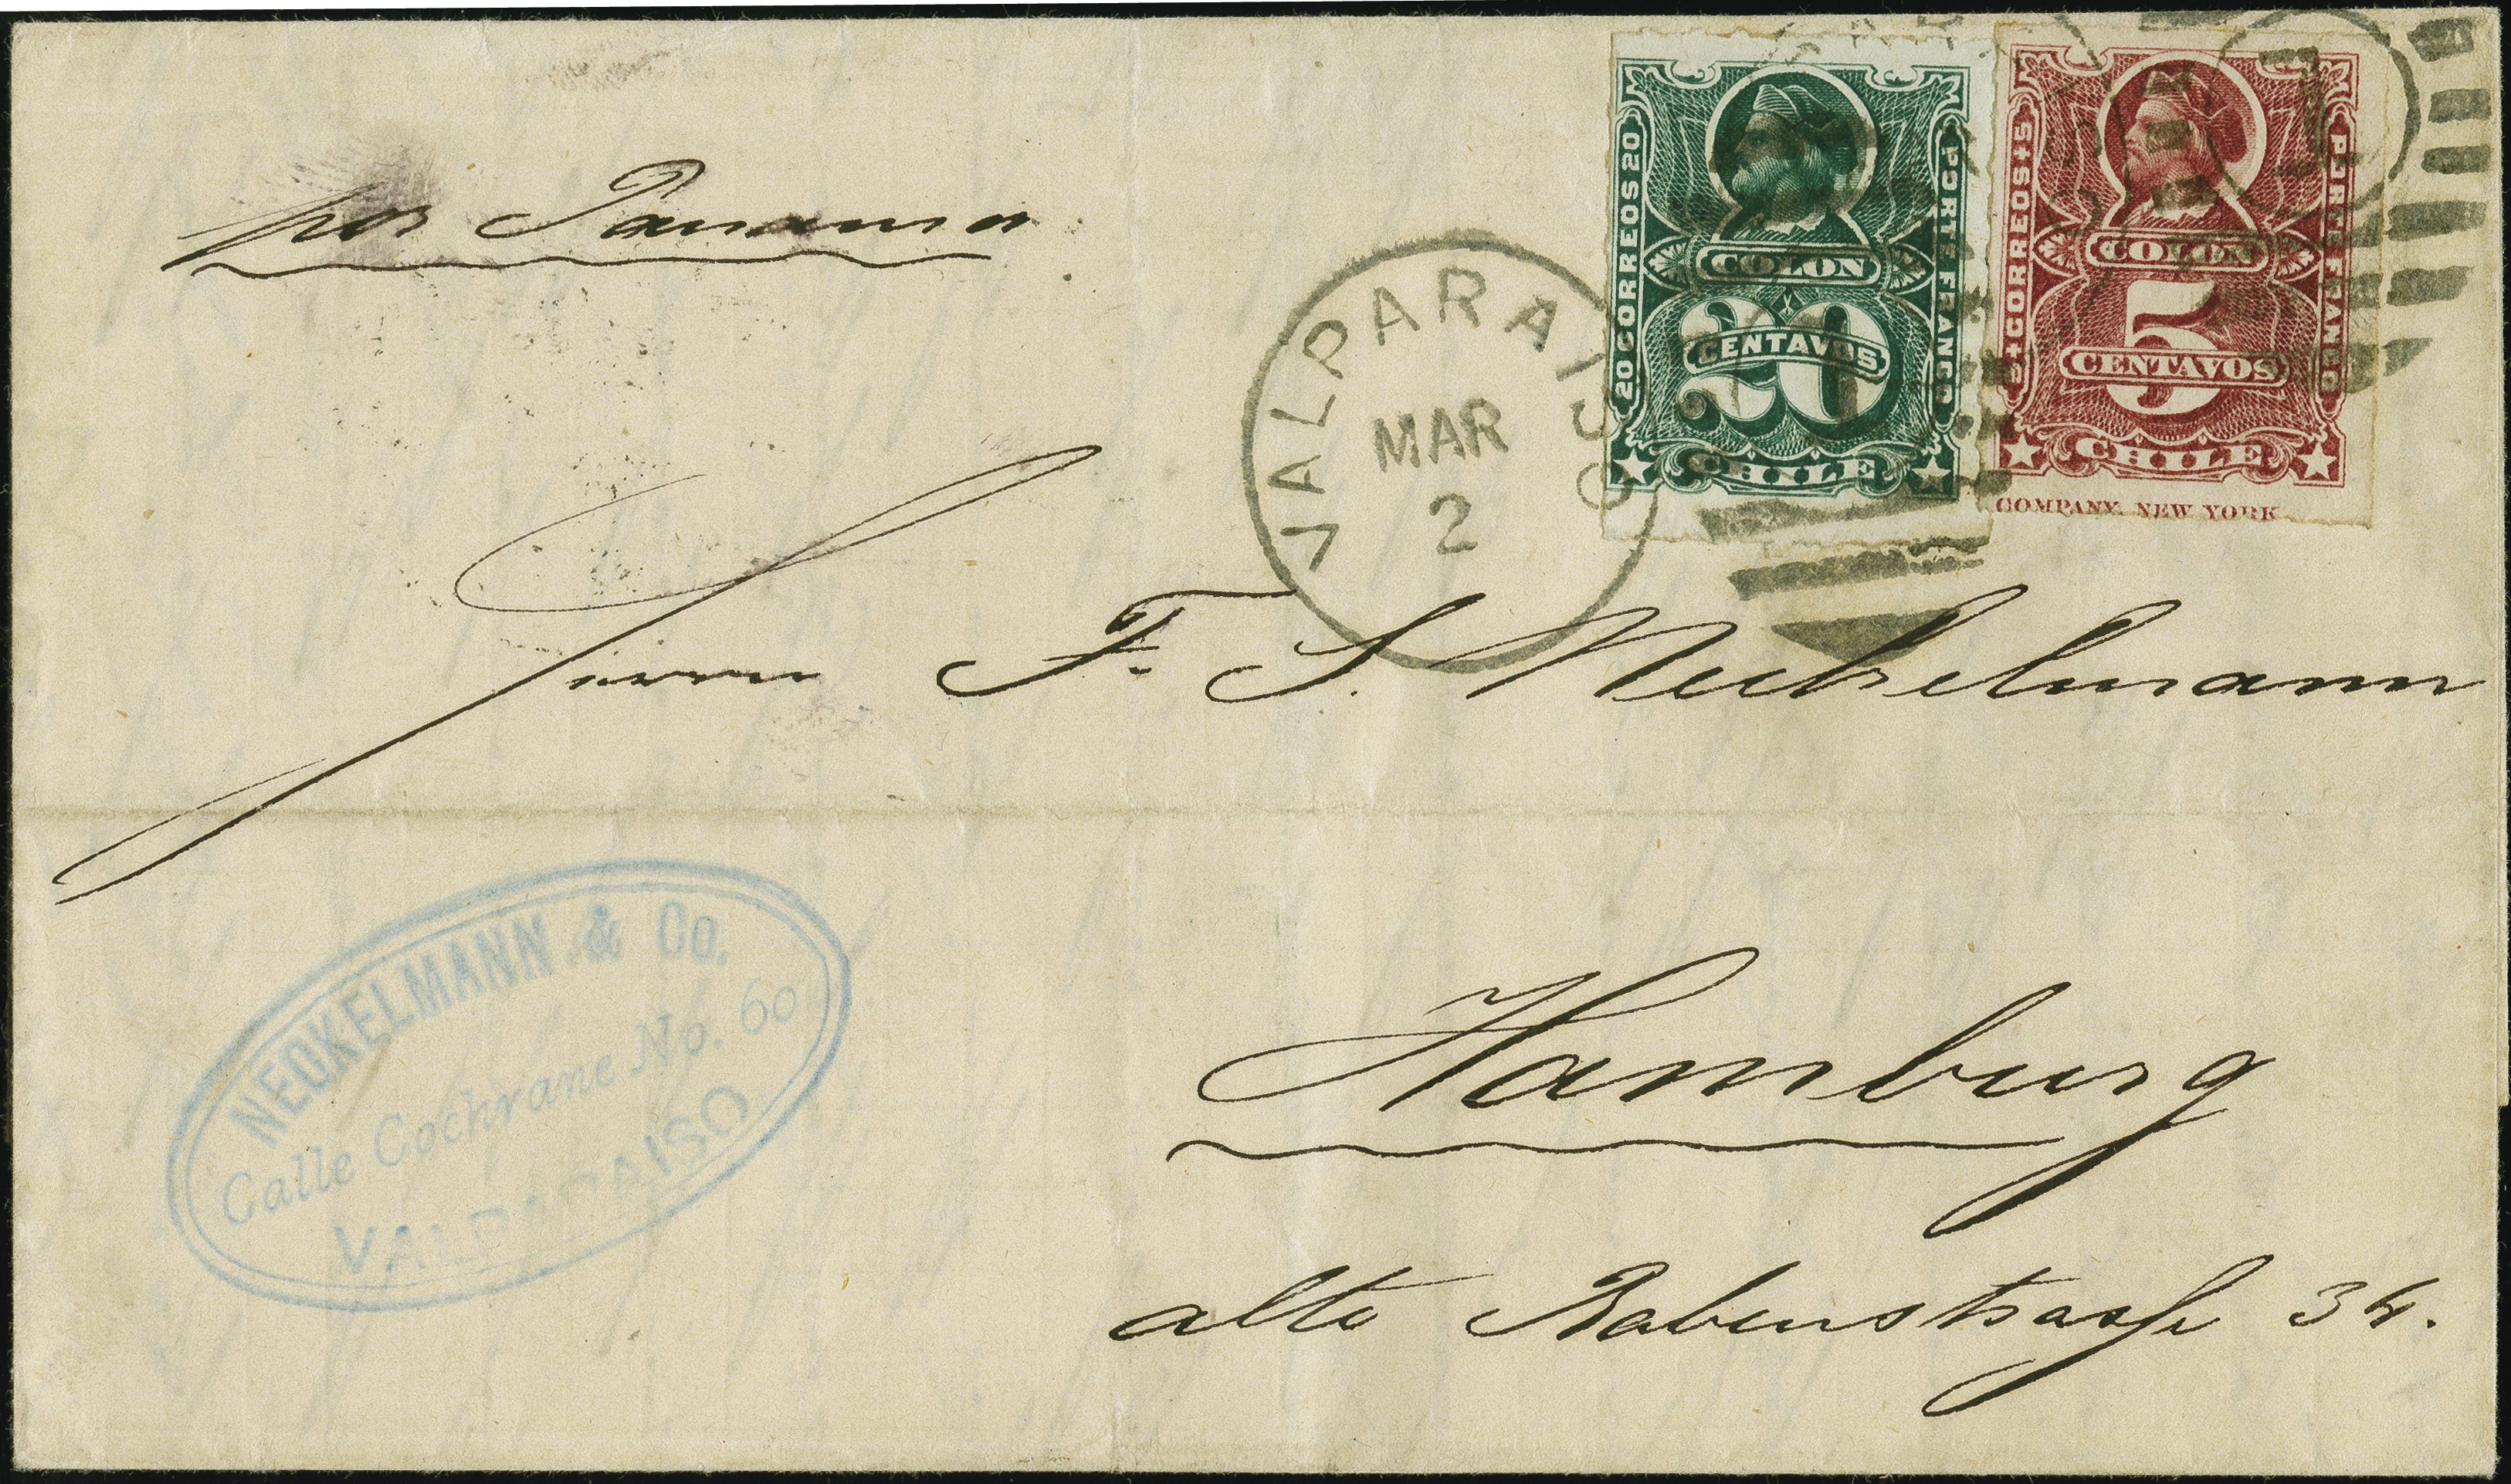 por Panama
20 CORREOS 20
PORTE FRANCO
COLON
20
CENTAVOS
CHILE
5 CORREOS 5
PORTE FRANCO
COLON
5
CENTAVOS
CHILE
COMPANY, NEW YORK
VALPARAISO
MAR
2
Herrn F. S. Neckelmann
NECKELMANN & Co.
Calle Cochrane No. 60
VALPARAISO
Hamburg
alte Rabenstrasse 34.